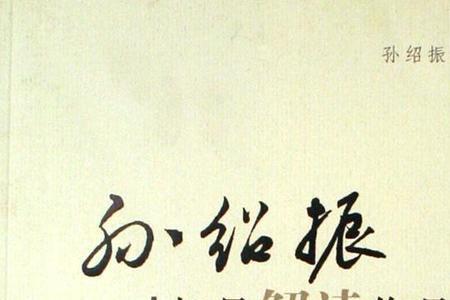 孙绍振
孙绍振
解读